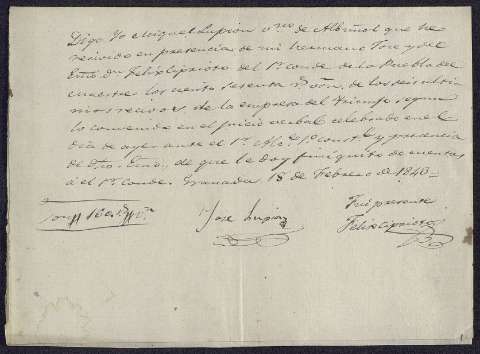 Digo Yo Miguel Lupion vno de Albuñol que he
recivido en presencia de mi hermano Jose y del
Esno. Dn Felix Liprioto del Sr. Conde de la Puebla del
Maestre los ciento sesenta rs. vn. de los seis ultimos
recivos de la empresa del Triunfo segun
lo convenido en el juicio verbal celebrado en el
dia de ayer ante el Sr. Alce. 1º constl. y presencia
de dho. Esno. de que le doy finiquito de cuentas
á el Sr. Conde. Granada 18 de Febrero de 1840=
Son 160 rs. vn.
Jose Lupion
Fui presente
Felix